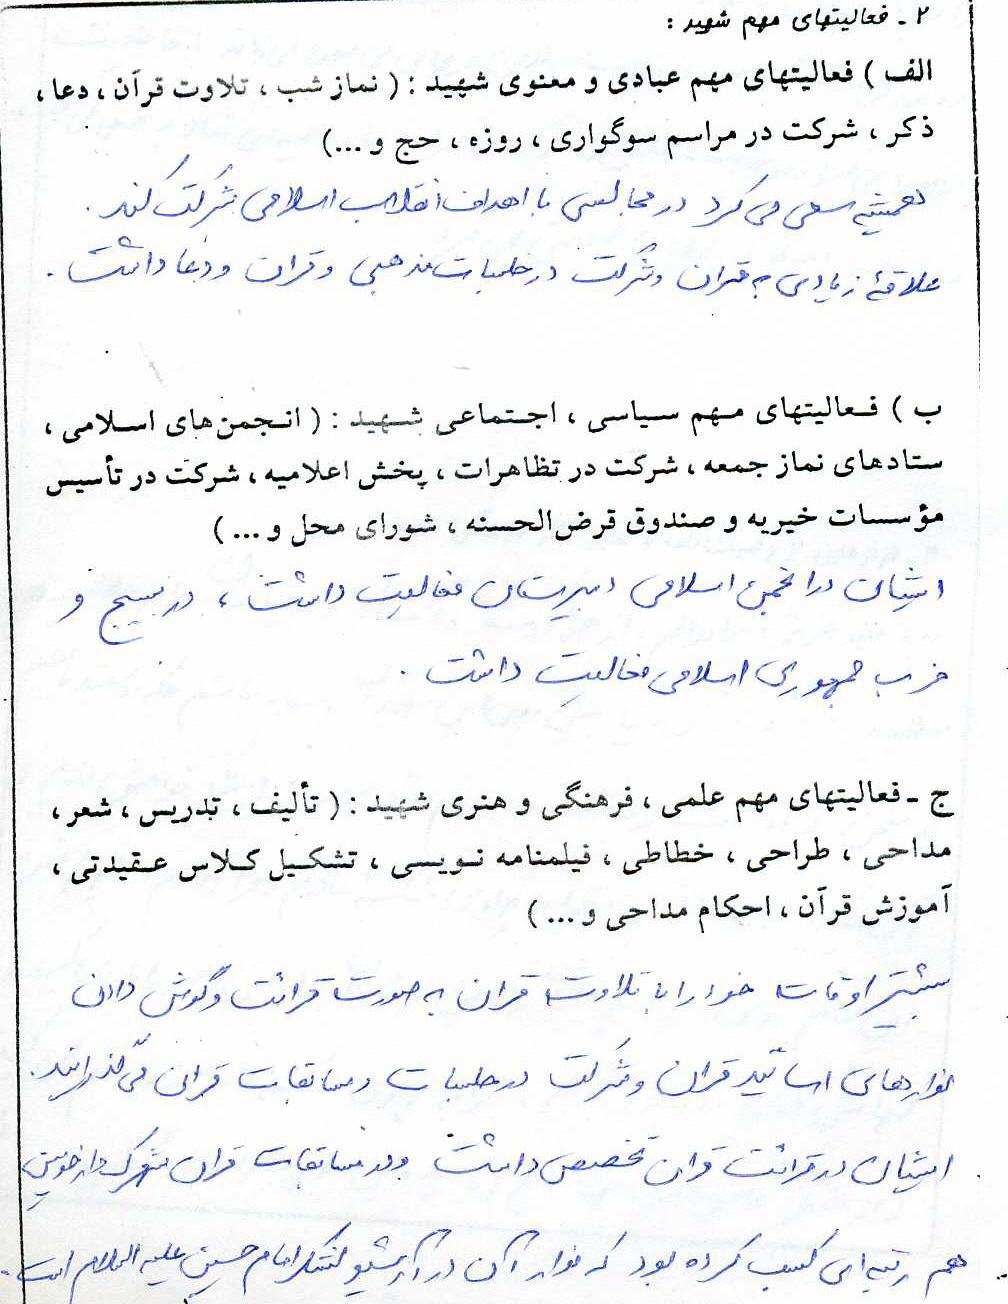 ۲ - فعالیتهای مهم شهید :
الف ) فعالیتهای مهم عبادی و معنوی شهید : ( نماز شب ، تلاوت قرآن ، دعا ،
ذکر ، شرکت در مراسم سوگواری ، روزه ، حج و ...)
همیشه سعی می کرد در مجالسی با اهداف انقلاب اسلامی شرکت کند .
علاقهٔ زیادی به قران و شرکت در جلسات مذهبی و قران و دعا داشت .
ب ) فعالیتهای مهم سیاسی ، اجتماعی شهید : ( انجمن های اسلامی ،
ستادهای نماز جمعه ، شرکت در تظاهرات ، پخش اعلامیه ، شرکت در تأسیس
مؤسسات خیریه و صندوق قرض الحسنه ، شورای محل و ... )
ایشان در انجمن اسلامی دبیرستان فعالیت داشت ، در بسیج و
حزب جمهوری اسلامی فعالیت داشت .
ج - فعالیتهای مهم علمی ، فرهنگی و هنری شهید : ( تألیف ، تدریس ، شعر ،
مداحی ، طراحی ، خطاطی ، فیلمنامه نویسی ، تشکیل کلاس عقیدتی ،
آموزش قرآن ، احکام مداحی و ... )
بیشتر اوقات خود را با تلاوت قران به صورت قرائت و گوش دادن
نوارهای اساتید قران و شرکت در جلسات و مسابقات قران می گذراند .
ایشان در قرائت قران تخصص داشت و در مسابقات قران شهرک دارخوین
هم رتبه ای کسب کرده بود که نوار آن در آرشیو لشکر امام حسین علیه السلام است .